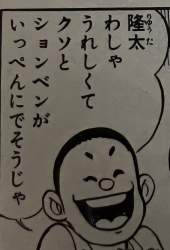 隆太
わしゃ
うれしくて
クソと
ションベンが
いっぺんにでそうじゃ